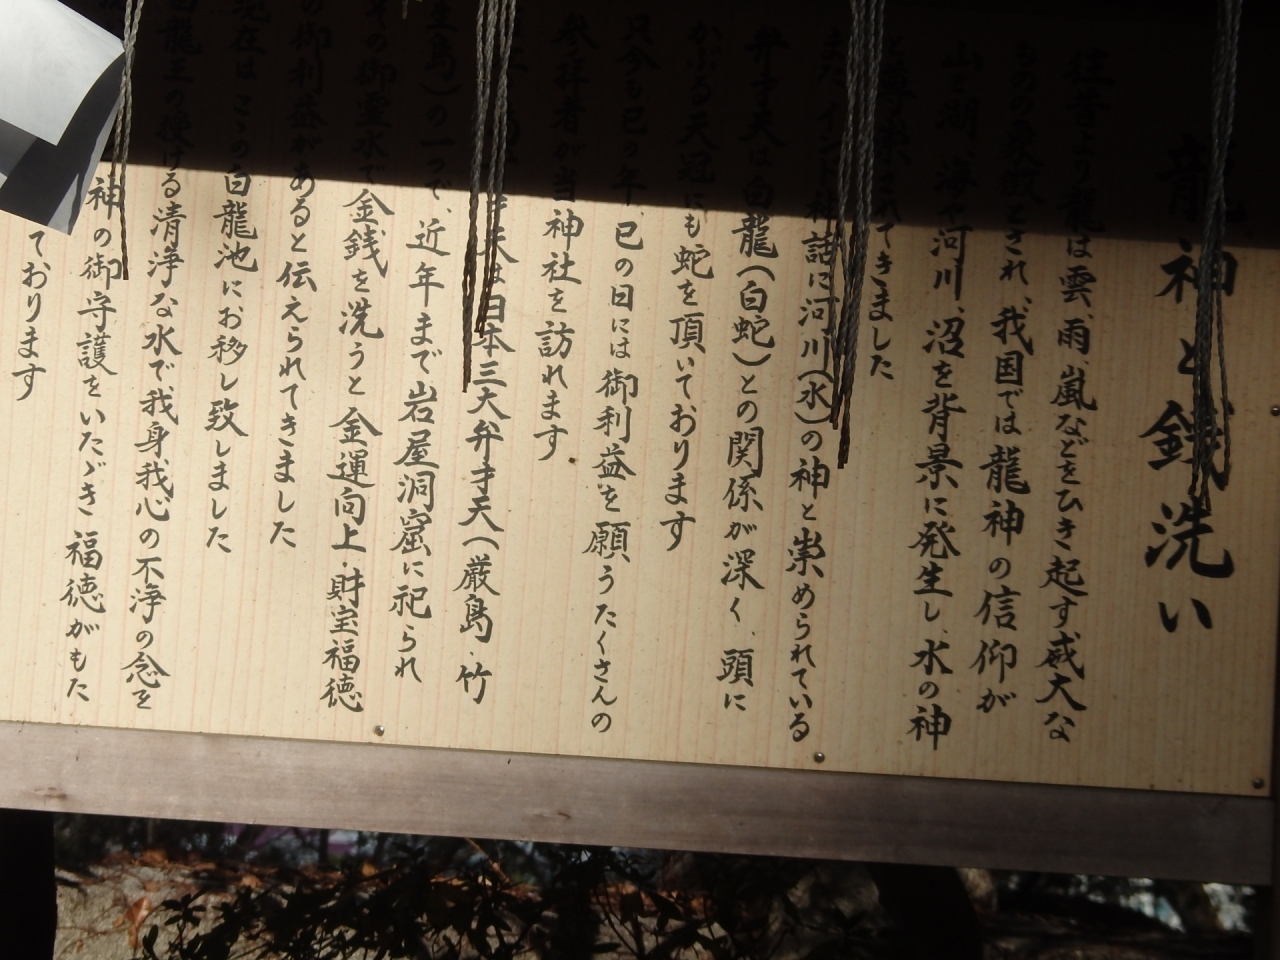 龍神と銭洗い
往昔より龍は雲、雨、嵐などをひき起す威大な
ものの象徴とされ、我国では龍神の信仰が
山、湖、海や河川、沼を背景に発生し、水の神
と尊崇されてきました
またインド神話に河川(水)の神と崇められている
弁才天は白龍(白蛇)との関係が深く、頭に
かぶる天冠にも蛇を頂いております
只今も巳の年、巳の日には御利益を願うたくさんの
参拝者が当神社を訪れます
は日本三大弁才天(厳島、竹
生島)の一つで、近年まで岩屋洞窟に祀られ
その御霊水で金銭を洗うと金運向上、財宝福徳
の御利益があると伝えられてきました
現在はこゝの白龍池にお移し致しました
白龍王の捧げる清浄な水で我身我心の不浄の念を
神の御守護をいたゞき福徳がもた
ております